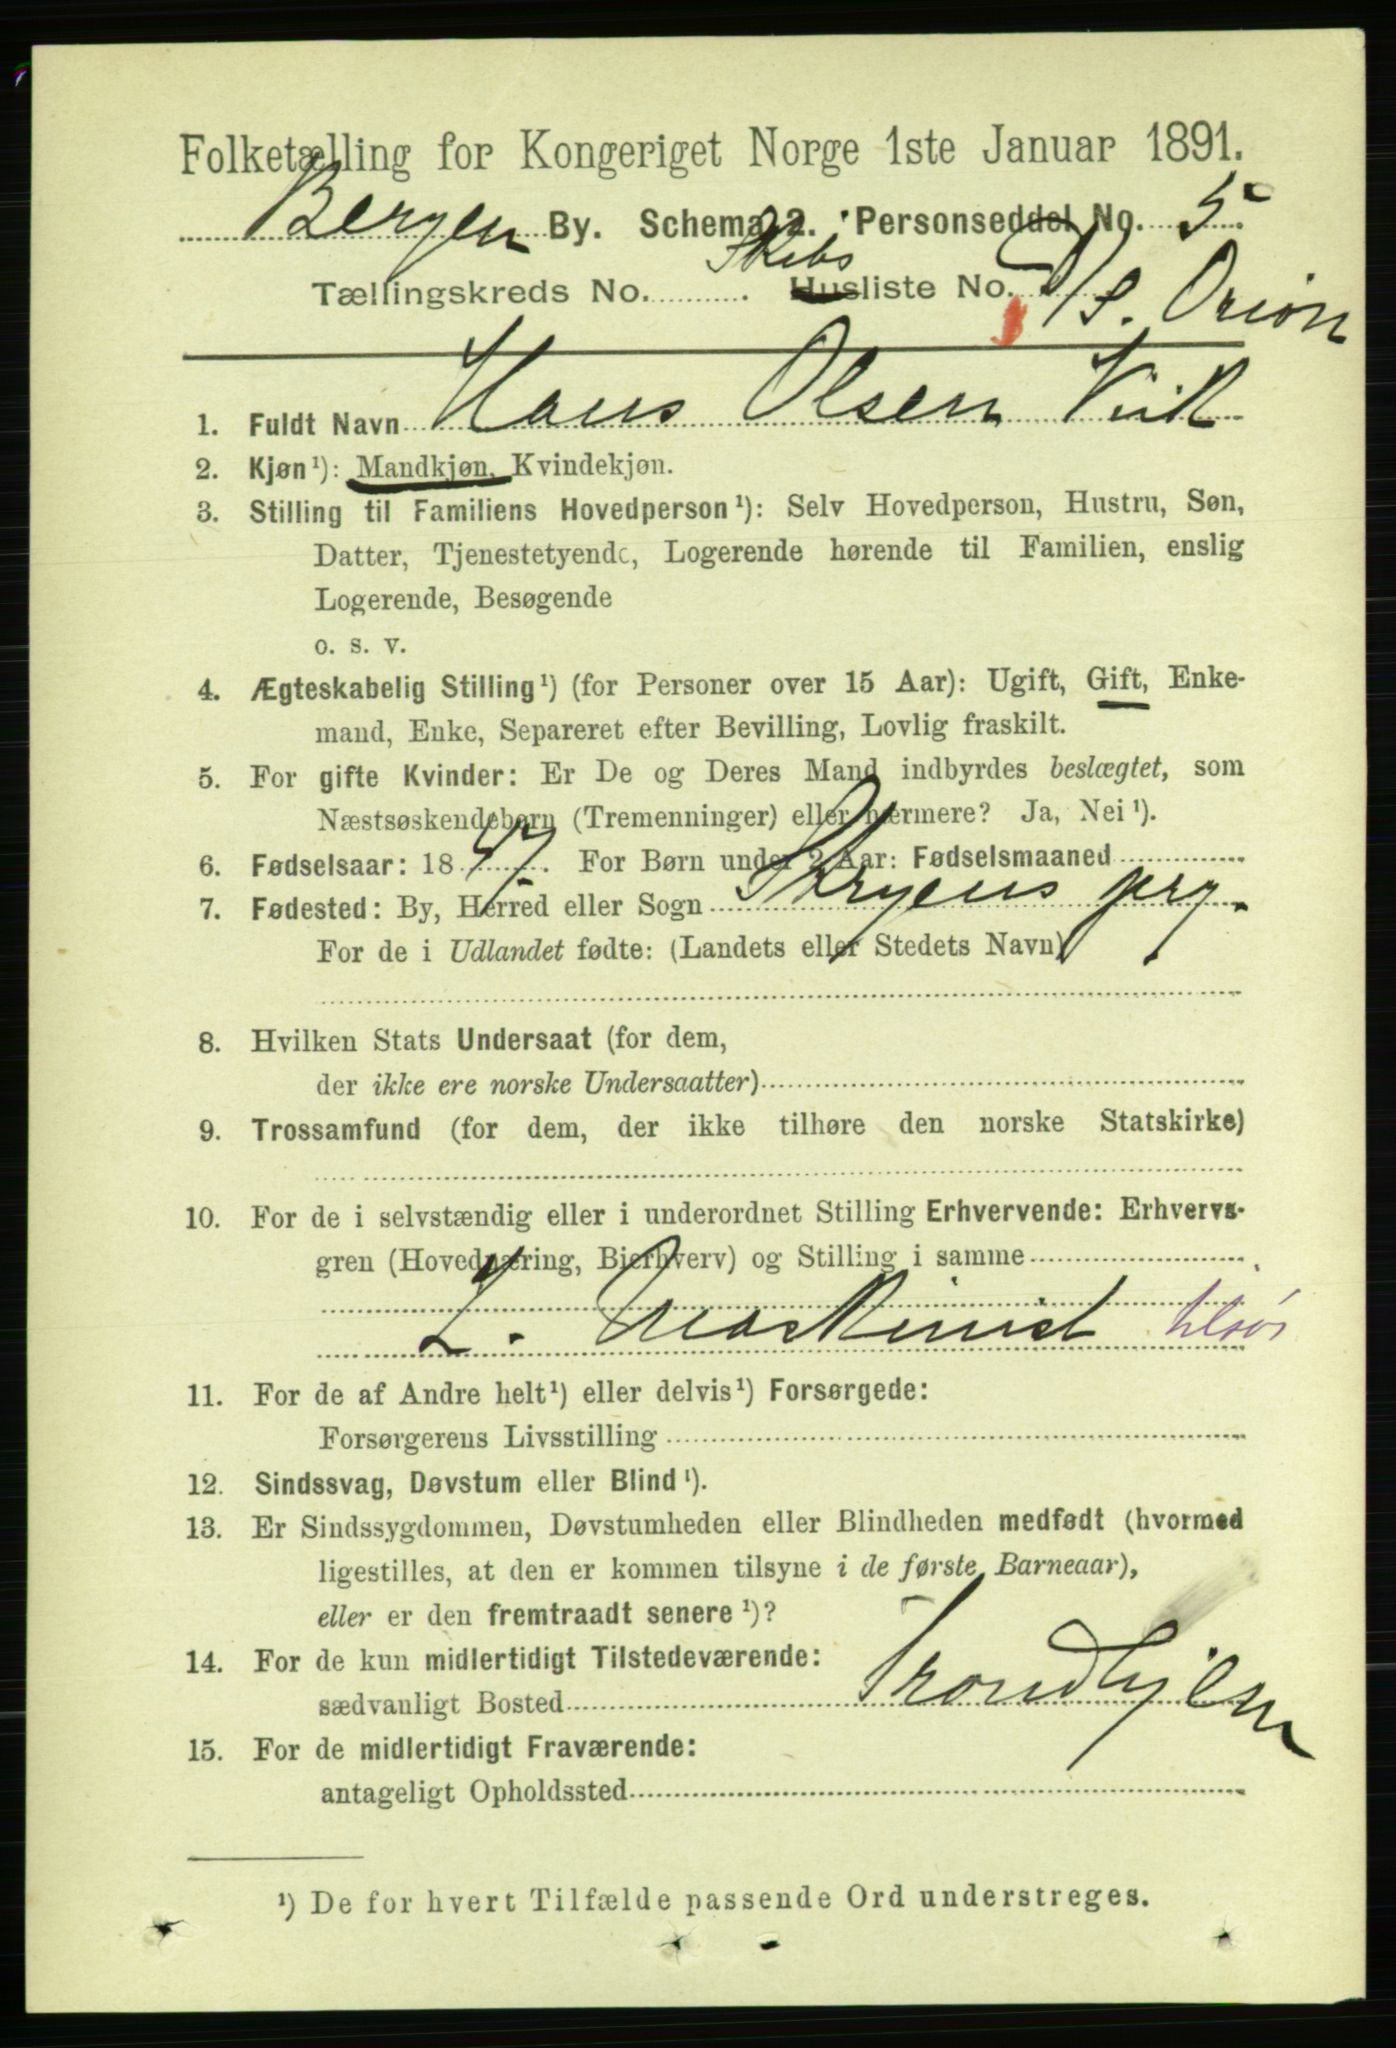 Folketælling for Kongeriget Norge 1ste Januar 1891.
Bergen By. Schema 2. Personseddel No. 5.
Tællingskreds No. . Skibs Husliste No. D/S. Orion
1. Fuldt Navn Hans Olsen Viik
2. Kjøn ¹): Mandkjøn, Kvindekjøn.
3. Stilling til Familiens Hovedperson ¹): Selv Hovedperson, Hustru, Søn,
Datter, Tjenestetyende, Logerende hørende til Familien, enslig
Logerende, Besøgende
o. s. v.
4. Ægteskabelig Stilling ¹) (for Personer over 15 Aar): Ugift, Gift, Enke-
mand, Enke, Separeret efter Bevilling, Lovlig fraskilt.
5. For gifte Kvinder: Er De og Deres Mand indbyrdes beslægtet, som
Næstsøskendebørn (Tremenninger) eller nærmere? Ja, Nei ¹).
6. Fødselsaar: 1847. For Børn under 2 Aar: Fødselsmaaned
7. Fødested: By, Herred eller Sogn Stryens prg.
For de i Udlandet fødte: (Landets eller Stedets Navn)
8. Hvilken Stats Undersaat (for dem,
der ikke ere norske Undersaatter)
9. Trossamfund (for dem, der ikke tilhøre den norske Statskirke)
10. For de i selvstændig eller i underordnet Stilling Erhvervende: Erhvervs-
gren (Hovednæring, Bierhverv) og Stilling i samme
2. Maskinist tilsøs
11. For de af Andre helt ¹) eller delvis ¹) Forsørgede:
Forsørgerens Livsstilling
12. Sindssvag, Døvstum eller Blind ¹).
13. Er Sindssygdommen, Døvstumheden eller Blindheden medfødt (hvormed
ligestilles, at den er kommen tilsyne i de første Barneaar),
eller er den fremtraadt senere ¹)?
14. For de kun midlertidigt Tilstedeværende:
sædvanligt Bosted Trondhjem
15. For de midlertidigt Fraværende:
antageligt Opholdssted
¹) De for hvert Tilfælde passende Ord understreges.